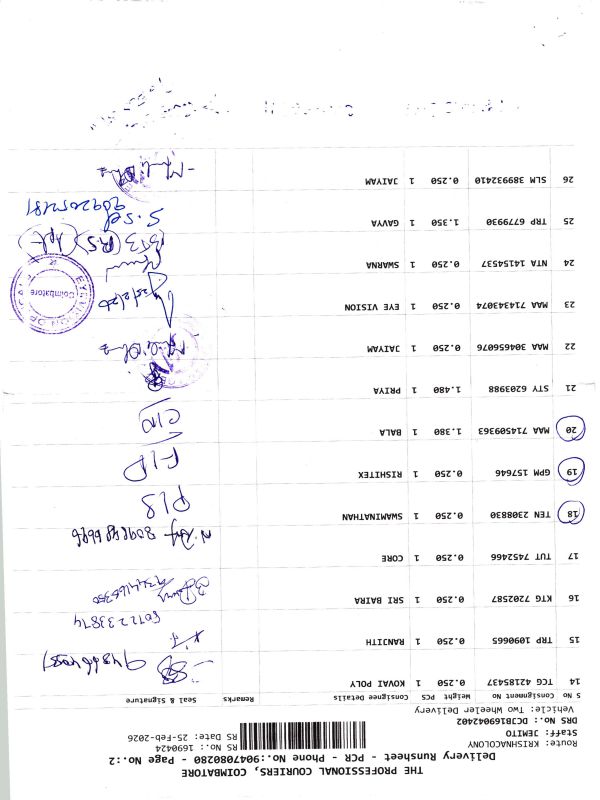 THE PROFESSIONAL COURIERS, COIMBATORE
Delivery Runsheet - PCR - Phone No.:9047080280 - Page No.:2
Route: KRISHNACOLONY RS No.: 1690424
Staff: JEMITO RS Date: 25-Feb-2026
DRS No.: DCB169042402
Vehicle: Two Wheeler Delivery
S No Consignment No Weight PCS Consignee Details Remarks Seal & Signature
14 TCG 42185437 0.250 1 KOVAI POLY
15 TRP 1090665 0.250 1 RANJITH
16 KTG 7202587 0.250 1 SRI BAIRA
17 TUT 7452466 0.250 1 CORE
18 TEN 2308830 0.250 1 SWAMINATHAN P18
19 GPM 157646 0.250 1 RISHITEX
20 MAA 714509363 1.380 1 BALA
21 STY 6203988 1.480 1 PRIYA
22 MAA 304656076 0.250 1 JAIYAM
23 MAA 714343074 0.250 1 EYE VISION 25/2/26
Coimbatore
24 NTA 14154537 0.250 1 SWARNA
25 TRP 6779930 1.350 1 GAVYA
26 SLM 389932410 0.250 1 JAIYAM